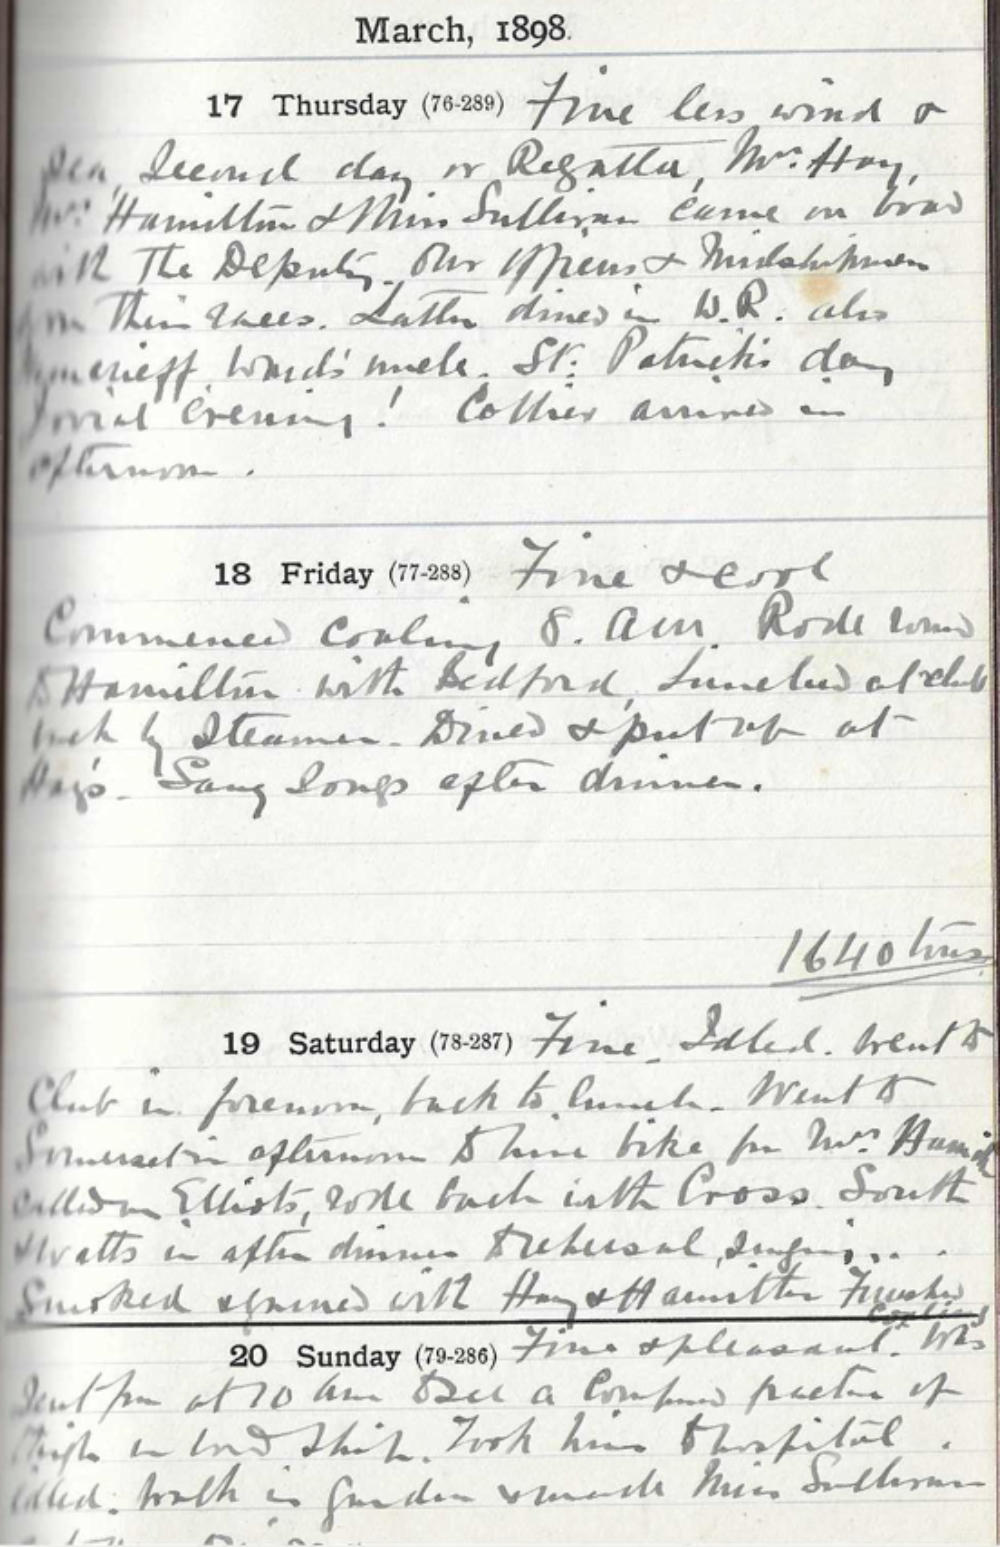 March, 1898.
17 Thursday (76-289) Fine less wind &
Sea, Second day of Regatta, Mrs. Hay,
Mrs. Hamilton & Miss Sullivan came on board
with The Deputy. Our Officers & Midshipmen
won their races. Latter dined in W.R. also
Ward's uncle. St. Patrick's day
Jovial Evening! Collier arrived in
afternoon.
18 Friday (77-288) Fine & cool
Commenced coaling 8. am. Rode round
to Hamilton with Bedford, Lunched at club
back by Steamer. Dined & put up at
Hay's. Sang Songs after dinner.
1640 tons
19 Saturday (78-287) Fine. Idled. Went to
Club in forenoon, back to lunch. Went to
Somerset in afternoon to hire bike for Mrs. Hamilt
called on Elliots, rode back with Cross. South
& Watts in after dinner to rehersal singing..
Smoked & yarned with Hay & Hamilton Finished
Coaling
20 Sunday (79-286) Fine & pleasant. Was
Sent for at 10 am to see a Compound fracture of
thigh on board Ship. Took him to hospital.
Idled. Walk in Garden & made Miss Sullivan